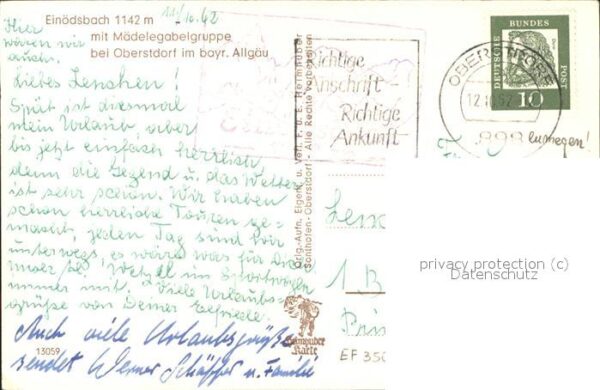 11/10.62
Einödsbach 1142 m
mit Mädelegabelgruppe
bei Oberstdorf im bayr. Allgäu
Hier
waren wir
auch.
Liebes Lenchen!
Spät ist diesmal
mein Urlaub, aber
bis jetzt einfach herrlich
denn die Gegend u. das Wetter
ist sehr schön. Wir haben
schon herrliche Touren ge-
macht, jeden Tag sind wir
unterwegs, es wäre was für Dich
im Sportwagen
immer mit. Viele Urlaubs-
grüße von Deiner
Auch viele Urlaubsgrüße
sendet Werner Schäffer u. Familie
13059
Orig.-Aufn. Eigent. u. Verl. F. u. E. Heimhuber
Sonthofen-Oberstdorf - Alle Rechte vorbehalten
Heimhuber
Karte
Richtige
Anschrift-
Richtige
Ankunft-
OBERSTDORF
12.10.62
898
DEUTSCHE
BUNDES
POST
10
Len
1 B
EF 350
privacy protection (c)
Datenschutz